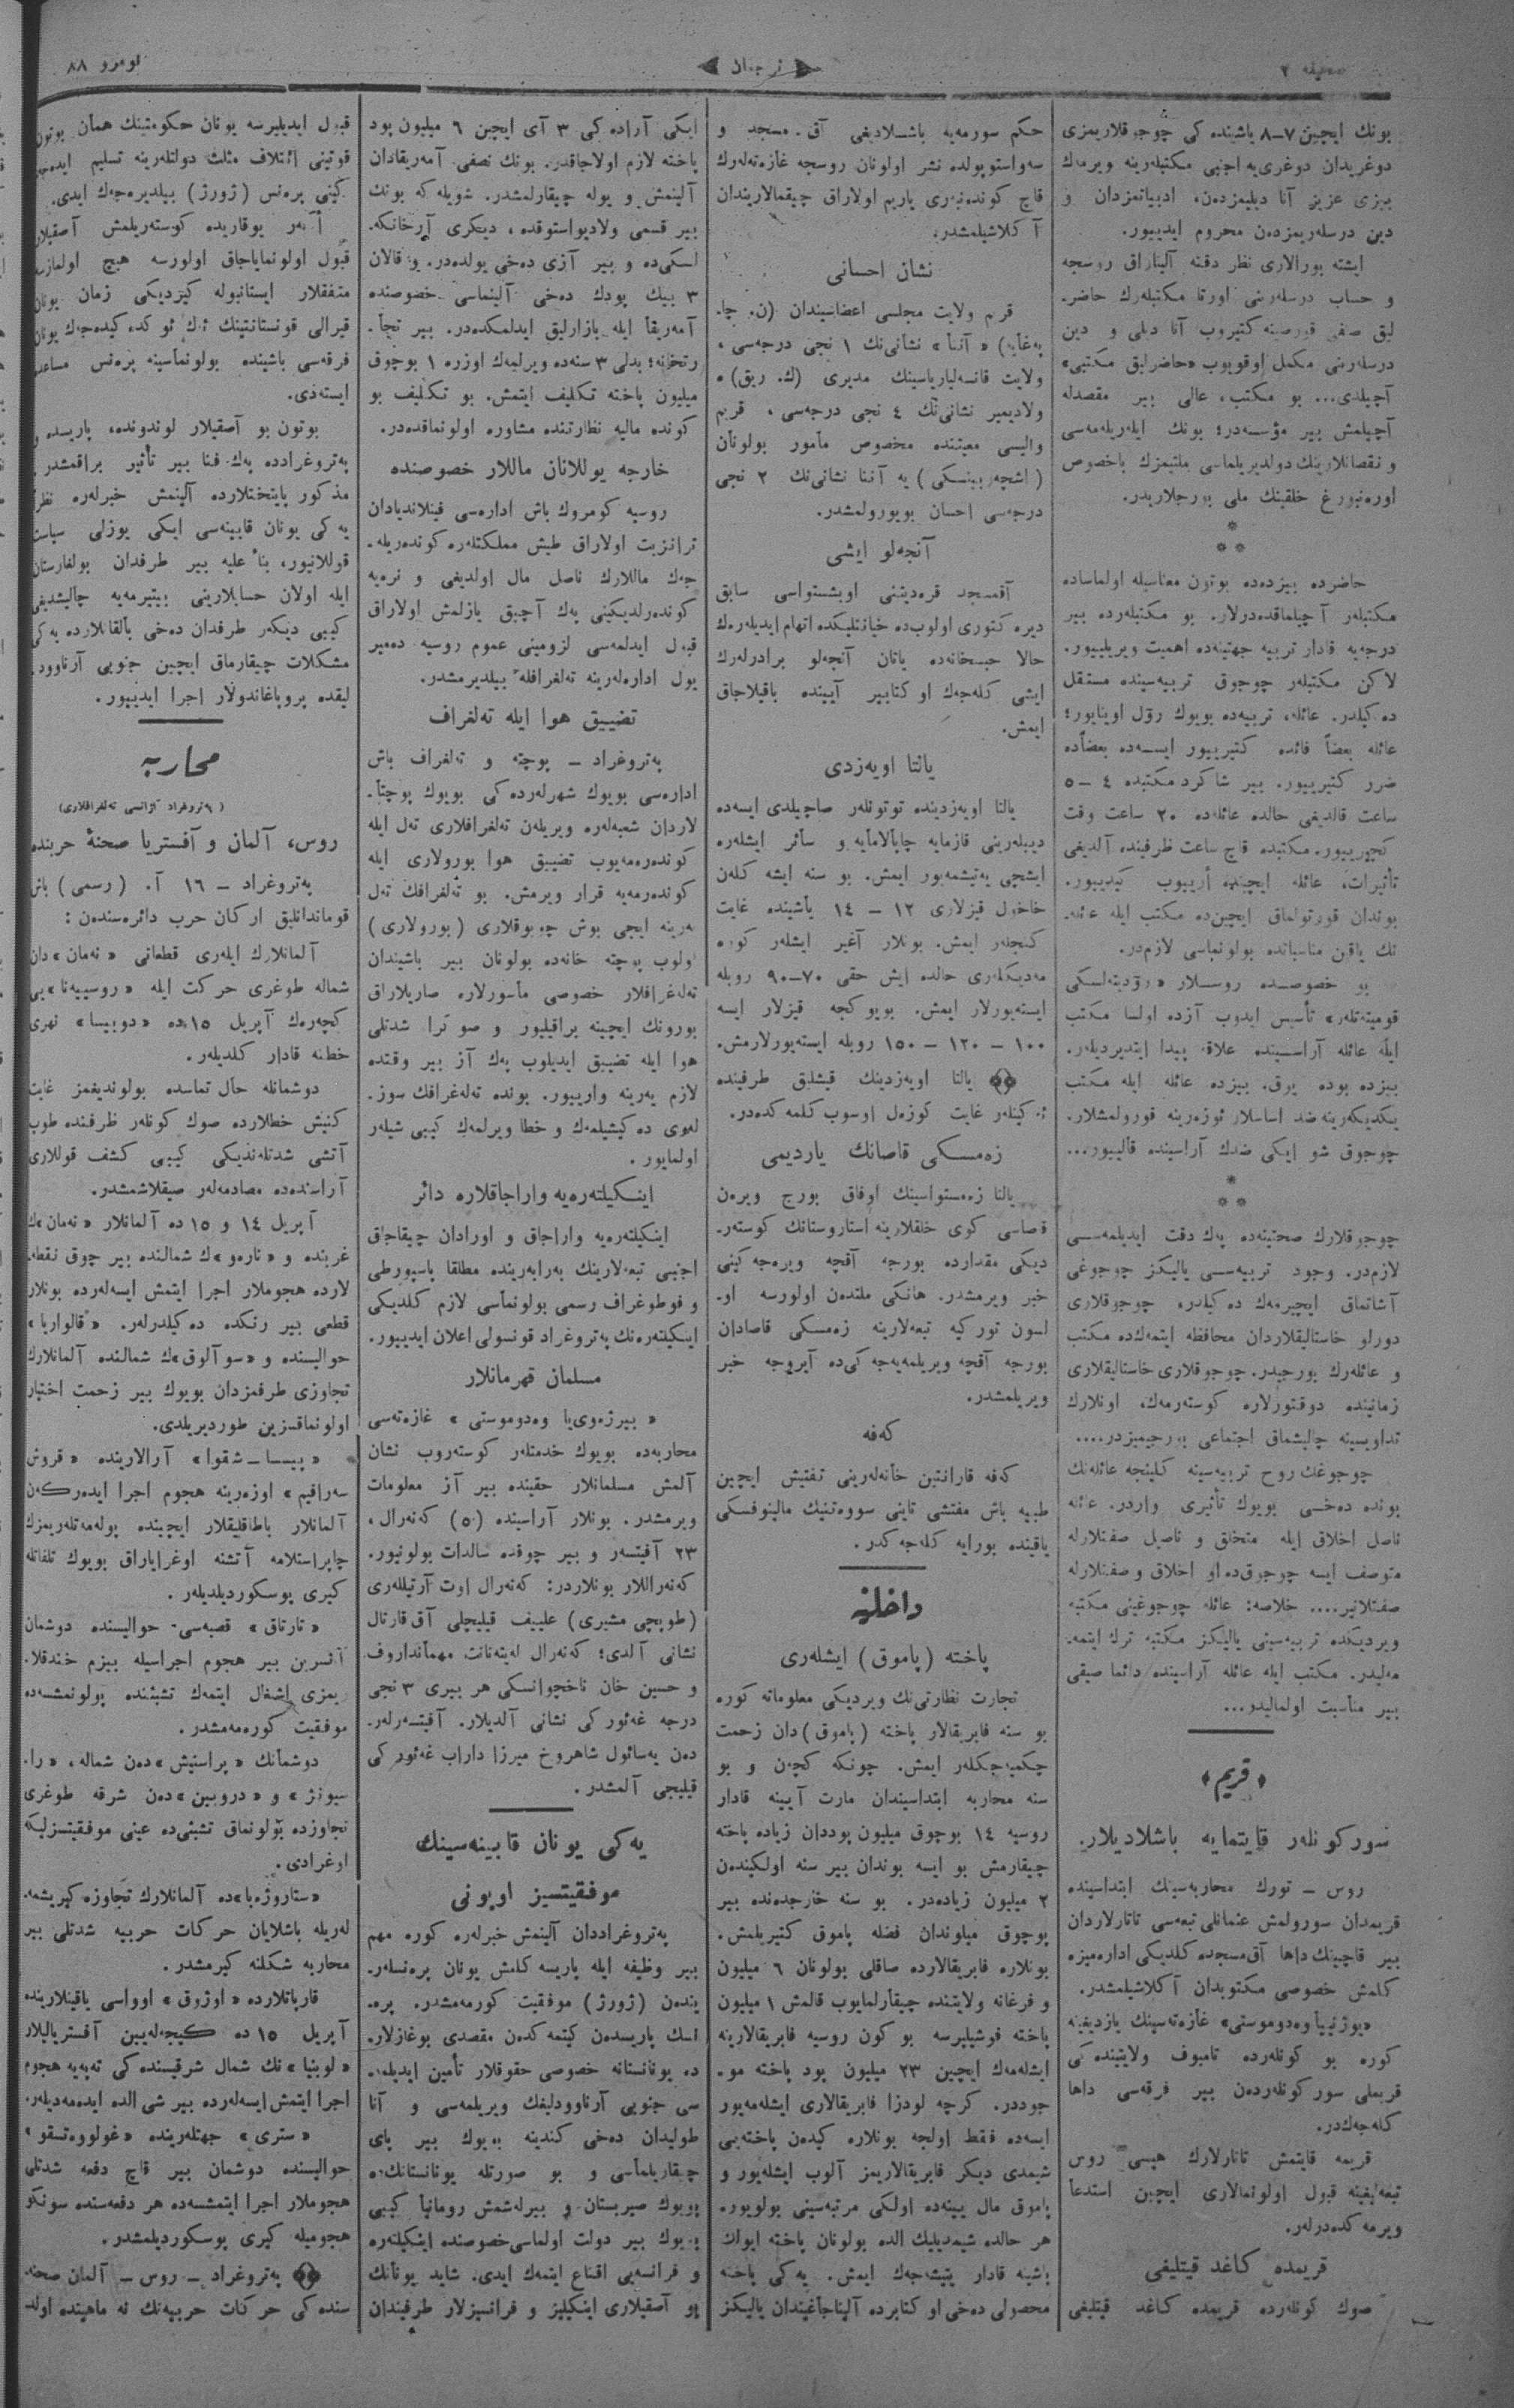 صحیفه ٢
ترجمان
نومرو ٨٨
بونك ایچین ٧–٨ یاشینده كی چوجوقلاریمزی
دوغریدان دوغری‌یه اجنبی مكتبلرینه ویرمك
بیزی عزیز آنا دیلیمزدن، ادبیاتمزدان و
دین درسلەریمزدن محروم ایدییور.
ایشته بورالاری نظر دقته آلیناراق روسجه
و حساب درسلەرنی اورتا مكتبلەرك حاضر-
لیق صفی قورصینه كتیروب آنا دیلی و دین
درسلەرنی مكمل اوقویوب «حاضرلیق مكتبی»
آچیلدی... بو مكتب، عالی بیر مقصدله
آچیلمش بیر مؤسسه‌در؛ بونك ایلەریلەمەسی
و نقصانلارینك دولدیریلماسی ملتیمزك باخصوص
اورەنبورغ خلقینك ملی بورجلاریدر.
*
* *
حاضرده بیزده‌ده بوتون معناسیله اولماساده
مكتبلەر آچیلماقده‌درلار. بو مكتبلەرده بیر
درجه‌یه قادار تربیه جهتینه‌ده اهمیت ویریلییور.
لاكن مكتبلەر چوجوق تربیەسینده مستقل
ده‌كیلدر. عائله، تربیه‌ده بویوك رۆل اویناییور؛
عائله بعضاً فائده كتیرییور ایسەده بعضاًده
ضرر كتیرییور. بیر شاكرد مكتبده ٤–٥
ساعت قالدیغی حالده عائلەده ٢٠ ساعت وقت
كچیرییور. مكتبده قاچ ساعت ظرفینده آلدیغی
تأثیرات، عائله ایچینده أرییوب كیدییور.
بوندان قورتولماق ایچین‌ده مكتب ایله عائله-
نك یاقن مناسباتده بولونماسی لازم‌در.
بو خصوصده روسلار «رۆدیتەلسكی
قومیتەتلەر» تأسیس ایدوب آزده اولسا مكتب
ایله عائله آراسینده علاقه پیدا ایتدیردیلەر.
بیزده بوده یوق. بیزده عائله ایله مكتب
یكدیكەرینه ضد اساسلار ئوزەرینه قورولمشلار.
چوجوق شو ایكی ضدك آراسینده قالییور...
*
* *
چوجوقلارك صحتینه‌ده پك دقت ایدیلمەسی
لازم‌در. وجود تربیەسی یالیكز چوجوغی
آشاتماق ایچیرمەك ده‌كیلدر، چوجوقلاری
دورلو خاستالیقلاردان محافظه ایتمەك‌ده مكتب
و عائلەرك بورجیدر. چوجوقلاری خاستالیقلاری
زمانینده دوقتورلاره كوستەرمەك، اونلارك
تداویسینه چالیشماق اجتماعی بورجیمیزدر....
چوجوغك روح تربیەسینه كلینجه عائلەنك
بونده ده‌خی بویوك تأثیری واردر. عائله
ناصل اخلاق ایله متخلق و ناصل صفتلارله
متوصف ایسه چوجوق‌ده او اخلاق و صفتلارله
صفتلانیر.... خلاصه: عائله چوجوغینی مكتبه
ویردیكده تربیەسینی یالیكز مكتبه ترك ایتمە-
مەلیدر. مكتب ایله عائله آراسینده دائما صیقی
بیر مناسبت اولمالیدر...
﴿قریم﴾
سوركونلەر قایتمایه باشلادیلار.
روس – تورك محاربەسینك ابتداسینده
قریمدان سورولمش عثمانلی تبعەسی تاتارلاردان
بیر قاچینك داها آق‌مسجده كلدیكی ادارەمیزه
كلمش خصوصی مكتوبدان آكلاشیلمشدر.
«یوژنییا وەدوموستی» غازەتەسینك یازدیغینه
كوره بو كونلەرده تامبوف ولایتینده كی
قریملی سوركونلەردن بیر فرقەسی داها
كله‌جەك‌در.
قریمه قایتمش تاتارلارك هپسی روس
تبعەلیغینه قبول اولونمالاری ایچین استدعا
ویرمه كده‌درلەر.
قریمده كاغد قیتلیغی
صوك كونلەرده قریمده كاغد قیتلیغی
حكم سورمەیه باشلادیغی آق‌مسجد و
سەواستوپولده نشر اولونان روسجه غازەتەلەرك
قاچ كونده‌نبەری یاریم اولاراق چیقمالاریندان
آكلاشیلمشدر.
نشان احسانی
قرم ولایت مجلسی اعضاسیندان (ن. چا-
یەغایە) «آننا» نشانی‌نك ١ نجی درجەسی،
ولایت قانسەلیاریاسینك مدیری (ك. ریق)ه
ولادیمیر نشانی‌نك ٤ نجی درجەسی، قریم
والیسی معیتنده مخصوص مأمور بولونان
(اشچەربینسكی) یه آننا نشانی‌نك ٢ نجی
درجەسی احسان بویورولمشدر.
آنجەلو ایشی
آقمسجد قرەدیتنی اوبشستواسی سابق
دیرەكتوری اولوب‌ده خیانتلیكده اتهام ایدیلەرەك
حالا حبسخانەده یاتان آنجەلو برادرلەرك
ایشی كله‌جەك اوكتابیر آیینده باقیلاجاق
ایمش.
یالتا اویەزدی
یالتا اویەزدینده توتونلەر صاچیلدی ایسەده
دیبلەرینی قازمایه چاپالامایه و سأئر ایشلەره
ایشچی یەتیشمەیور ایمش. بو سنه ایشه كلەن
خاخول قیزلاری ١٢ – ١٤ یاشینده غایت
كنجلەر ایمش. بونلار آغیر ایشلەر كوره
مەدیكلەری حالده ایش حقی ٧٠–٩٠ روبله
ایستەیورلار ایمش. بویوكجه قیزلار ایسه
١٠٠ – ١٢٠ – ١٥٠ روبله ایستەیورلارمش.
﴿﴾ یالتا اویەزدینك قیشلیق طرفینده
ئەكینلەر غایت كوزەل اوسوب كلمەكده‌در.
زەمسكی قاصانك یاردیمی
یالتا زەمستواسینك اوفاق بورج ویرەن
قصاسی كوی خلقلارینه استاروستانك كوستەر-
دیكی مقدارده بورجه آقچه ویره‌جەكینی
خبر ویرمشدر. هانكی ملتدن اولورسه او-
لسون توركیه تبعەلارینه زەمسكی قاصادان
بورجه آقچه ویریلمەیەجەكی‌ده آیروجه خبر
ویریلمشدر.
كەفه
كەفه قارانتین خأنەلەرینی تفتیش ایچین
طبیه باش مفتشی تاینی سووەتنیك مالینوفسكی
یاقینده بورایه كلەجەكدر.
داخلیه
پاخته (پاموق) ایشلەری
تجارت نظارتی‌نك ویردیكی معلوماته كوره
بو سنه فابریقالار پاخته (پاموق) دان زحمت
چكمیەجكلەر ایمش. چونكه كچەن و بو
سنه محاربه ابتداسیندان مارت آیینه قادار
روسیه ١٤ بوچوق میلیون پوددان زیاده پاخته
چیقارمش بو ایسه بوندان بیر سنه اولكیندەن
٢ میلیون زیاده‌در. بو سنه خارجدەنده بیر
بوچوق میلوندان فضله پاموق كتیریلمش.
بونلاره فابریقالارده صاقلی بولونان ٦ میلیون
و فرغانه ولایتنده چیقارلمایوب قالمش ١ میلیون
پاخته قوشیلیرسه بو كون روسیه فابریقالارینه
ایشلەمەك ایچین ٢٣ میلیون پود پاخته مو-
جوددر. كرچه لودزا فابریقالاری ایشلەمەیور
ایسەده فقط اولجه بونلاره كیدەن پاختەیی
شیمدی دیكر فابریقالاریمز آلوب ایشلەیور و
پاموق مال یینەده اولكی مرتبەسینی بولویور.
هر حالده شیمدیلیك الده بولونان پاخته ایولك
باشینه قادار یتیشەجەك ایمش. یەكی پاخته
محصولی ده‌خی اوكتابرده آلیناجاغیندان یالیكز
ایكی آراده كی ٣ آی ایچین ٦ میلیون پود
پاخته لازم اولاجاقدر. بونك نصفی آمەریقادان
آلینمش و یوله چیقارلمشدر. شویله كه بونك
بیر قسمی ولادیواستوقده، دیكری آرخانكە-
لسكی‌ده و بیر آزی ده‌خی یولده‌در. بو قالان
٣ بیك پودك ده‌خی آلینماسی خصوصنده
آمەریقأ ایله بازارلیق ایدلمكده‌در. بیر تجأ-
رتخانه؛ بدلی ٣ سنەده ویرلمەك اوزره ١ بوچوق
میلیون پاخته تكلیف ایتمش. بو تكلیف بو
كونده مالیه نظارتنده مشاوره اولونماقده‌در.
خارجه یوللانان ماللار خصوصنده
روسیه كومروك باش ادارەسی فینلاندیادان
ترانزیت اولاراق طیش مملكتلەره كوندەریلە-
جەك ماللارك ناصل مال اولدیغی و نرەیه
كوندەرلدیكینی پەك آچیق یازلمش اولاراق
قبول ایدلمەسی لزومینی عموم روسیه دەمیر
یول ادارەلەرینه تەلغرافله بیلدیرمشدر.
تضییق هوا ایله تەلغراف
پەتروغراد – پوچته و تەلغراف باش
ادارەسی بویوك شهرلەرده كی بویوك پوچتأ-
لاردان شعبەلەره ویریلەن تەلغرافلاری تەل ایله
كوندەرمەیوب تضییق هوا بورولاری ایله
كوندەرمەیه قرار ویرمش. بو تەلغرافك تەل
یەرینه ایچی بوش چوبوقلاری (بورولاری)
اولوب پوچته خانەده بولونان بیر باشیندان
تەلەغرافلار خصوصی مأسورلاره صاریلاراق
بورونك ایچینه براقیلیور و صوكرا شدتلی
هوا ایله تضییق ایدیلوب پەك آز بیر وقتده
لازم یەرینه وارییور. بونده تەلەغرافك سوز-
لەری دەكیشیلمەك و خطا ویرلمەك كیبی شیلەر
اولمایور.
اینكیلتەرەیه واراجاقلاره دائر
اینكیلتەرەیه واراجاق و اورادان چیقاجاق
اجنبی تبعەلارینك بەرابەرینده مطلقا پاسپورطی
و فوطوغراف رسمی بولونمأسی لازم كلدیكی
اینكیلتەرەنك پەتروغراد قونسولی اعلان ایدییور.
مسلمان قهرمانلار
«بیرژەوی‌یا وەدوموستی» غازەتەسی
محاربەده بویوك خدمتلەر كوستەروب نشان
آلمش مسلمانلار حقینده بیر آز معلومات
ویرمشدر. بونلار آراسینده (٥٠) كەنەرال،
٢٣ آفیتسەر و بیر چوقده سالدات بولونیور.
كەنەراللار بونلاردر: كەنەرال اوت آرتیللەری
(طوپچی مشیری) علییف قیلیچلی آق قارتال
نشانی آلدی؛ كەنەرال لەیتەنانت مهمأنداروف
و حسین خان ناخچوانسكی هر بیری ٣ نجی
درجه غەئوركی نشانی آلدیلار. آفیتسەرلەر-
دەن یەسائول شاهروخ میرزا داراب غەئوركی
قیلیجی آلمشدر.
یەكی یونان قابینەسینك
موفقیتسیز اویونی
پەتروغراددان آلینمش خبرلەره كوره مهم
بیر وظیفه ایله پاریسه كلمش یونان پرەنسلەر-
یندەن (ژورژ) موفقیت كورمەمشدر. پرە-
نسك پاریسدەن كیتمەكدن مقصدی بوغازلار-
ده یونانستانه خصوصی حقوقلار تأمین ایدیلمە-
سی جنوبی آرناوودلیغك ویریلمەسی و آنا
طولیدان ده‌خی كندینه بویوك بیر پای
چیقاریلمأسی و بو صورتله یونانستانك‌ده
بویوك صیربستان و بیرلەشمش رومانیأ كیبی
بویوك بیر دولت اولماسی خصوصنده اینكیلتەره
و فرانسەیی اقناع ایتمەك ایدی. شاید یونانك
بو آصقیلاری اینكیلیز و فرانسیزلار طرفیندان
قبول ایدیلیرسه یونان حكومتینك همأن بوتون
قوتینی ائتلاف مثلث دولتلەرینه تسلیم ایدەجە-
كینی پرەنس (ژورژ) بیلدیرەجەك ایدی.
أكەر یوقاریده كوستەریلمش آصقیلار
قبول اولونمایاجاق اولورسه هیچ اولمازسه
متفقلار ایستانبوله كیردیكی زمان یونان
قیرالی قونستانتینك ئەك ئوكده كیدەجەك یونان
فرقەسی باشینده بولونمأسینه پرەنس مساعده
ایستەدی.
بوتون بو آصقیلار لوندونده، پاریسده و
پەتروغرادده پەك فنا بیر تأثیر براقمشدر.
مذكور پایتختلارده آلینمش خبرلەره نظراً
یەكی یونان قابینەسی ایكی یوزلی سیاست
قوللانیور، بناءً علیه بیر طرفدان بولغارستان
ایله اولان حسابلارینی بیتیرمەیه چالیشدیغی
كیبی دیكەر طرفدان ده‌خی بالقانلارده یەكی
مشكلات چیقارماق ایچین جنوبی آرناوود-
لیقده پروپاغاندولار اجرا ایدییور.
محاربه
(پەتروغراد آژانسی تەلغرافلاری)
روس، آلمان و آفستریا صحنهٔ حربنده
پەتروغراد – ١٦ آ. (رسمی) باش
قوماندانلیق اركان حرب دائرەسندەن:
آلمانلارك ایلەری قطعاتی «نەمان» دان
شماله طوغری حركت ایله «روسیینا» یی
كچەرەك آپریل ١٥ده «دوبیسا» نهری
خطنه قادار كلدیلەر.
دوشمانله حال تماسده بولوندیغمز غایت
كنیش خطلارده صوك كونلەر ظرفنده طوب
آتشی شدتلەندیكی كیبی كشف قوللاری
آراسنده‌ده مصادمەلەر صیقلاشمشدر.
آپریل ١٤ و ١٥ ده آلمانلار «نەمان»ك
غربنده و «نارەو»ك شمالنده بیر چوق نقطە-
لارده هجوملار اجرا ایتمش ایسەلەرده بونلار
قطعی بیر رنكده ده‌كیلدرلەر. «قالواریا»
حوالیسنده و «سوآلوق»ك شمالنده آلمانلارك
تجاوزی طرفمزدان بویوك بیر زحمت اختیار
اولونماقسزین طوردیریلدی.
«پیسا–شقوا» آرالارینده «قروش
سەراقیم» اوزەرینه هجوم اجرا ایدەركەن
آلمانلار باطاقلیقلار ایچینده پولەمەتلەریمزك
چاپراستلامه آتشنه اوغرایاراق بویوك تلفاتله
كیری پوسكوردیلدیلەر.
«تارتاق» قصبەسی حوالیسنده دوشمان
آنسزین بیر هجوم اجراسیله بیزم خندقلا-
ریمزی اشغال ایتمەك تشبثنده بولونمشسەده
موفقیت كورەمەمشدر.
دوشمأنك «پراسنیش» دەن شماله، «را-
سیونژ» و «دروبین» دەن شرقه طوغری
تجاوزده بۆلونماق تشبثی‌ده عینی موفقیتسزلیكه
اوغرادی.
«ستاروژەبا» ده آلمانلارك تجاوزه كیریشمە-
لەریله باشلایان حركات حربیه شدتلی بیر
محاربه شكلنه كیرمشدر.
قارپاتلارده «اوژوق» اوواسی یاقینلارینده
آپریل ١٥ ده كیجەلەیین آفستریالیلار
«لوبنیا» نك شمال شرقیسنده كی تەپەیه هجوم
اجرا ایتمش ایسەلەرده بیر شی الده ایدەمەدیلەر.
«ستری» جهتلەرینده «غولووەتسقو»
حوالیسنده دوشمان بیر قاچ دفعه شدتلی
هجوملار اجرا ایتمشسەده هر دفعەسنده سونكو
هجومیله كیری پوسكوردیلمشدر.
﴿﴾ پەتروغراد – روس – آلمان صحنە-
سنده كی حركات حربیەنك نه ماهیتده اولد-